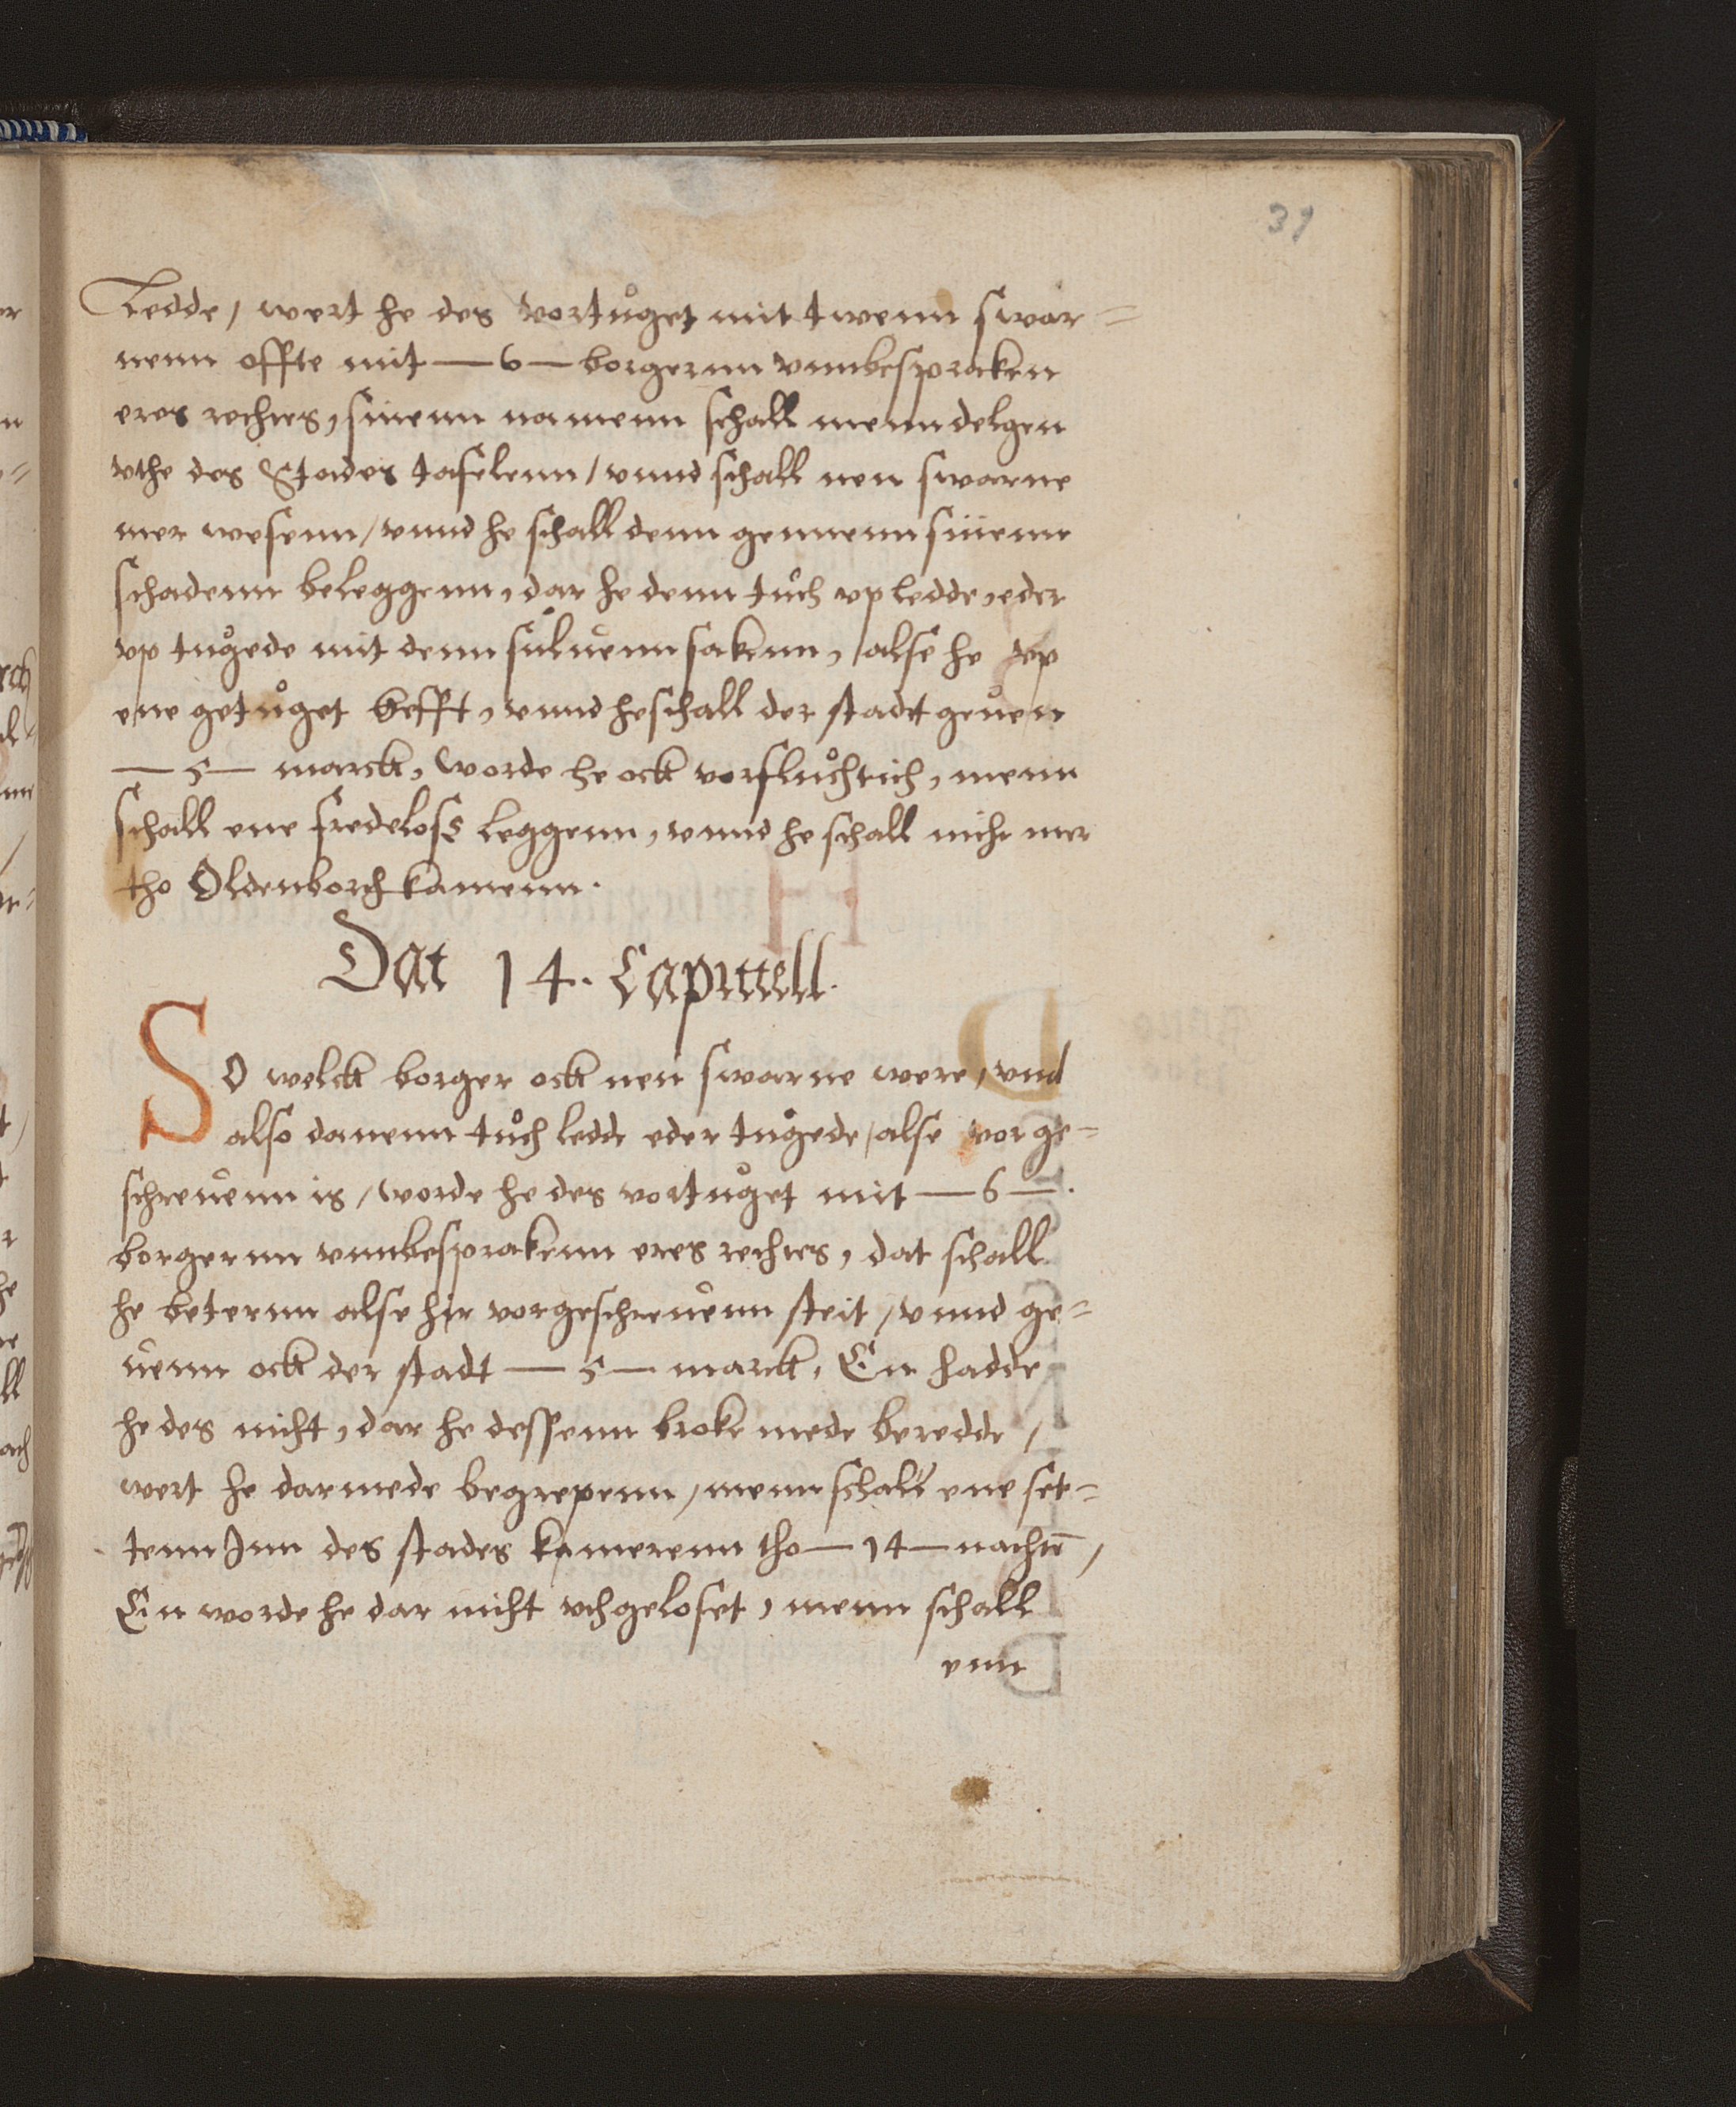 37
Ledde, wert he des vortůget mit twenn swar=
nenn offte mit — 6 — borgernn vnnbespraken
eres rechtes, sinenn namenn schall menn delgen
vthe des Stades tafelenn, vnnd schall nen swarne
mer wesenn, vnnd he schall denn gennenn sinenn
schadenn beleggenn, dar he denn tůch vp ledde, eder
vp tůgede mit denn sůluenn sakenn, alse he vp
ene getůget hefft, vnnd he schall der stadt geuen
— 5 — marck, worde he ock vorflůchtich, menn
schall ene fredeloss leggenn, vnnd he schall nicht mer
tho Oldenborch kamenn.
Dat 14. Capittell.
SO welck borger ock nen swarne were, vnd
also danenn tůch ledde eder tůgede, alse vorge=
schreuenn is, worde he des vortůget mit — 6 —.
borgernn vnnbesprakenn eres rechtes, dat schall
he beternn alse hir vorgeschreuenn steit, vnnd ge=
uenn ock der stadt — 5 — marck, En hadde
he des nicht, dar he dessenn broke mede beredde,
wert he darmede begrepenn, menn schall ene set=
tenn Jnn des stades kamerenn tho — 14 — nachtē,
En worde he dar nicht vthgeloset, menn schall
enn